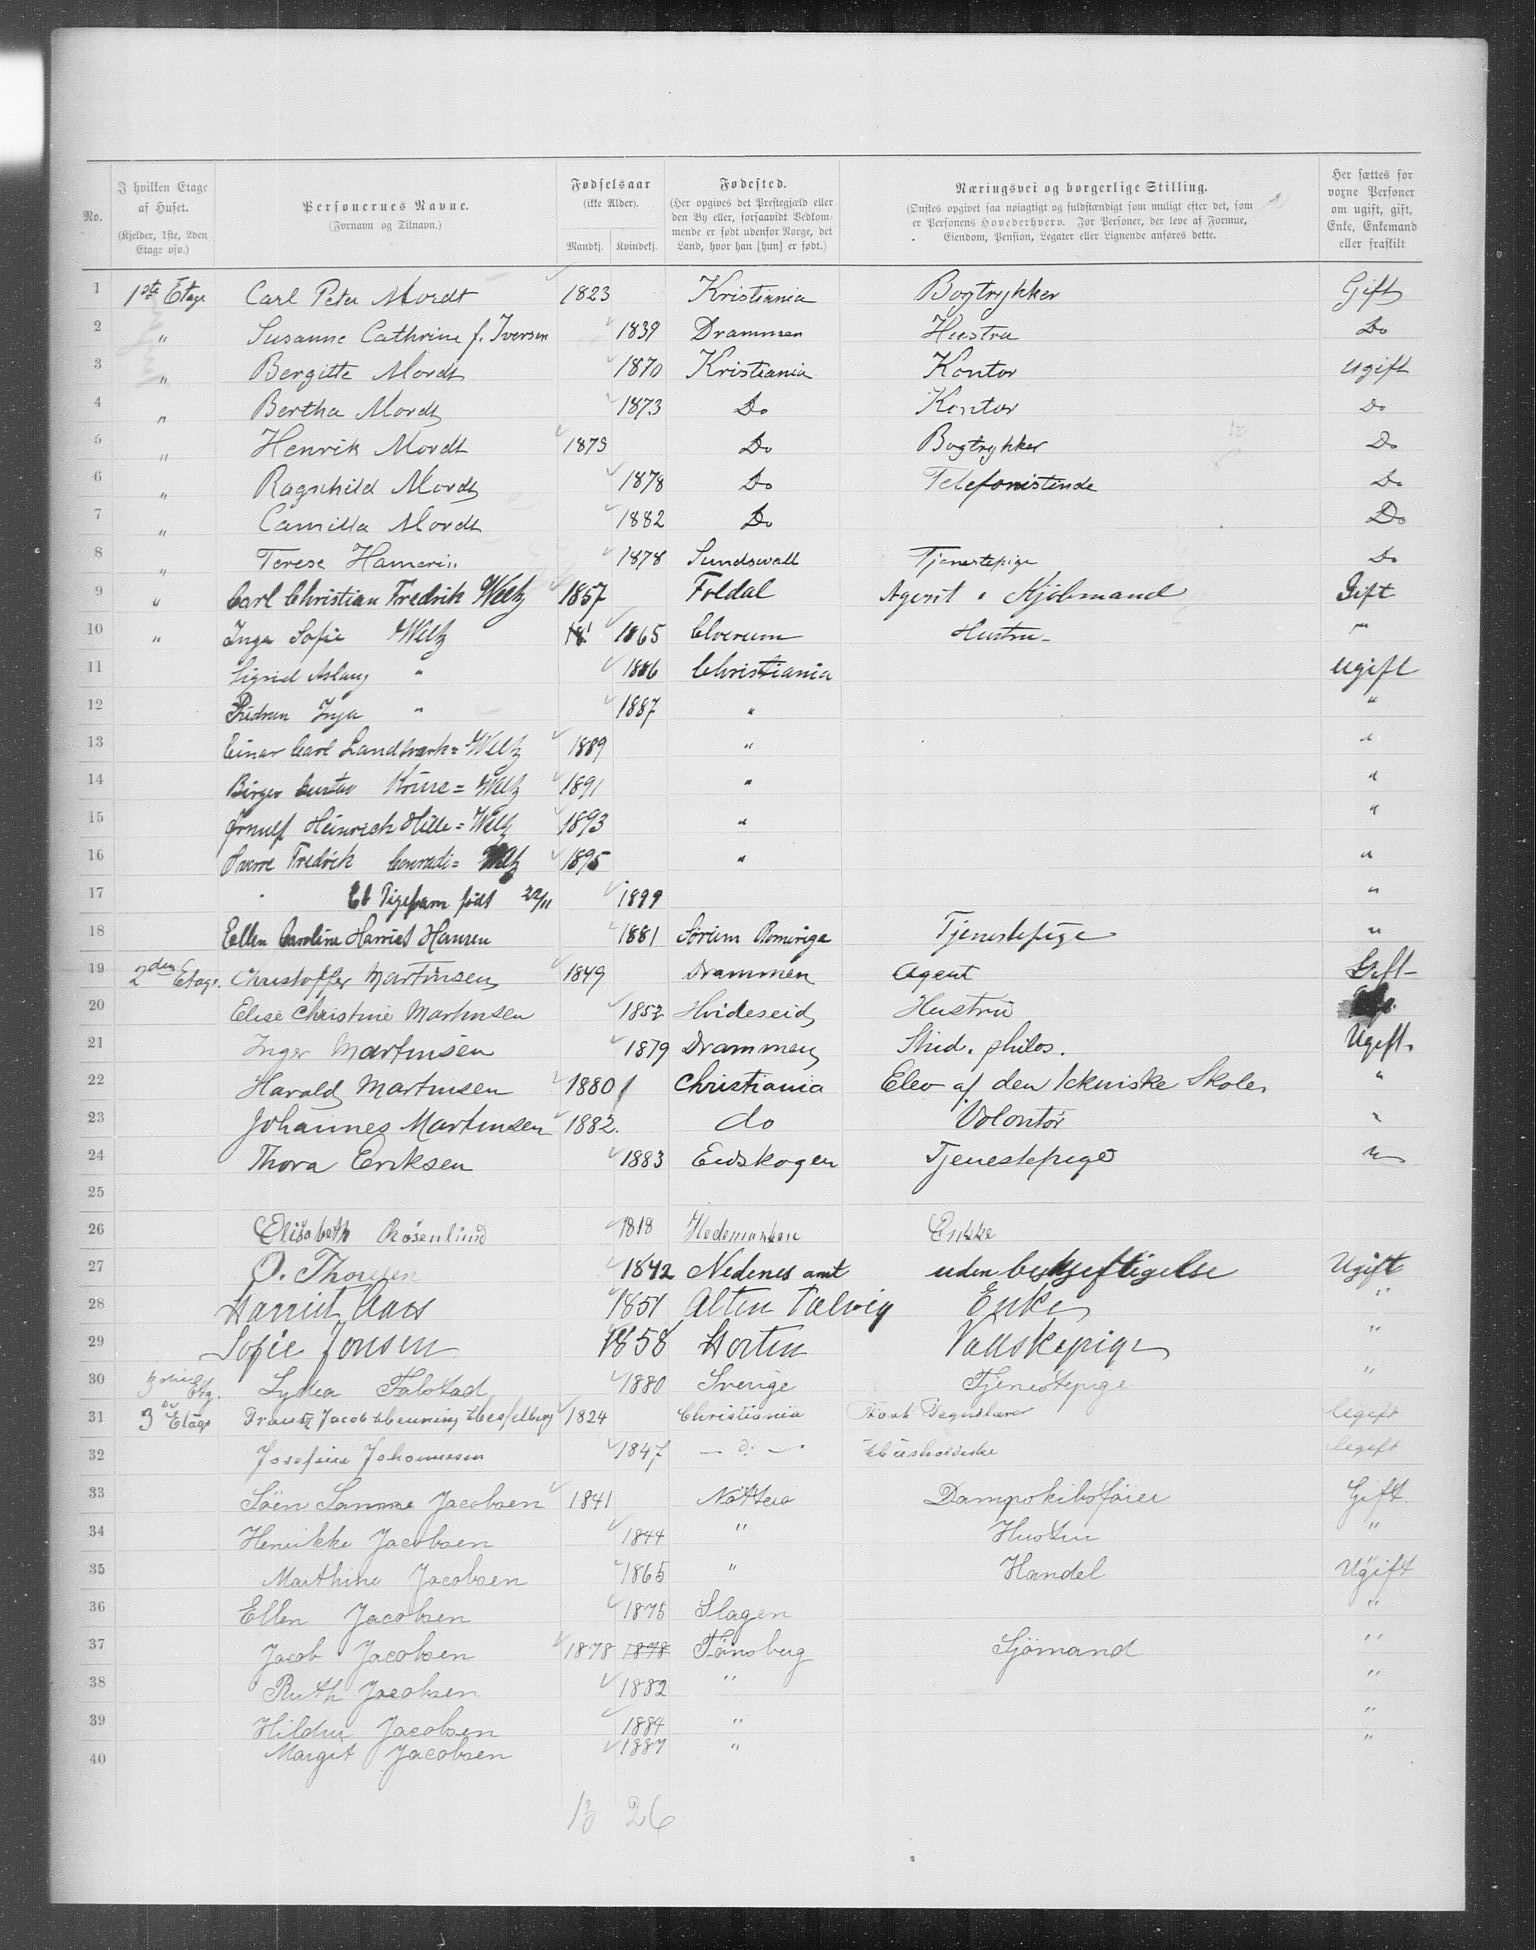 No.
I hvilken Etage af Huset. (Kjelder, 1ste, 2den Etage osv.)
Personernes Navne. (Fornavn og Tilnavn.)
Fødselsaar (ikke Alder). Mandkj. Kvindekj.
Fødested. (Her opgives det Prestegjæld eller den By eller, forsaavidt Vedkommende er født udenfor Norge, det Land, hvor han [hun] er født.)
Næringsvei og borgerlige Stilling. (Ønskes opgivet saa nøiagtigt og fuldstændigt som muligt efter det, som er Personens Hovederhverv. For Personer, der leve af Formue, Eiendom, Pension, Legater eller Lignende anføres dette.
Her sættes for voxne Personer om ugift, gift, Enke, Enkemand eller fraskilt
1 1ste Etage Carl Peter Mordt 1823 Kristiania Bogtrykker Gift
2 " Susanne Cathrine f. Iversen 1839 Drammen Hustru Do
3 " Bergitte Mordt 1870 Kristiania Kontor ugift
4 " Bertha Mordt 1873 Do Kontor Do
5 " Henrik Mordt 1873 Do Bogtrykker Do
6 " Ragnhild Mordt 1878 Do Telefonistinde Do
7 " Camilla Mordt 1882 Do Do
8 " Terese 1878 Sundswall Tjenestepige Do
9 " Carl Christian Fredrik Weltz 1857 Foldal Agent Kjöbmand Gift
10 " Inga Sofie Weltz 1865 Elverum Hustru "
11 Sigrid Aslaug " 1886 Christiania Ugift
12 Inga " 1887 " "
13 Einar Carl Landtværk=Weltz 1889 " "
14 Birger Gustav Kruse=Weltz 1891 " "
15 Ørnulf Heinrich Hille=Weltz 1893 " "
16 Sverre Fredrik Conradi=Weltz 1895 " "
17 Et Pigebarn født 22/11 1899 "
18 Ellen Caroline Harriet Hansen 1881 Sörum Romerige Tjenestepige "
19 2den Etage. Christoffer Martinsen 1849 Drammen Agent Gift
20 Elise Christine Martinsen 1852 Hvideseid Hustru
21 Inger Martinsen 1879 Drammen Stud. philos. Ugift.
22 Harald Martinsen 1880 Christiania Elev af den tekniske Skole "
23 Johannes Martinsen 1882. do Volontör "
24 Thora Eriksen 1883 Eidskogen Tjenestepige "
25
26 Elisabeth Rosenlund 1818 Hedemarken Enkke
27 O. Thoresen 1842 Nedenes amt uden beskjeftigelse Ugift
28 Harriet Aars 1851 Alten Talvig Enke "
29 Sofie Jonsen 1858 Horten Vaskepige "
30 Etg. Lydia Falstad 1880 Sverige Tjenestepige "
31 3die Etage Jacob Henning Hesselberg 1824 Christiania Ugift
32 Josefine Johannesen 1847 - do - Husholderske Ugift
33 Sören Sanne Jacobsen 1841 Nötterö Dampskibsförer Gift
34 Henrikke Jacobsen 1844 " Hustru "
35 Marthine Jacobsen 1865 " Handel Ugift
36 Ellen Jacobsen 1875 Slagen "
37 Jacob Jacobsen 1878 1878 Tönsberg Sjömand "
38 Ruth Jacobsen 1882 " "
39 Hildur Jacobsen 1884 " "
40 Margit Jacobsen 1887 " "
13 26